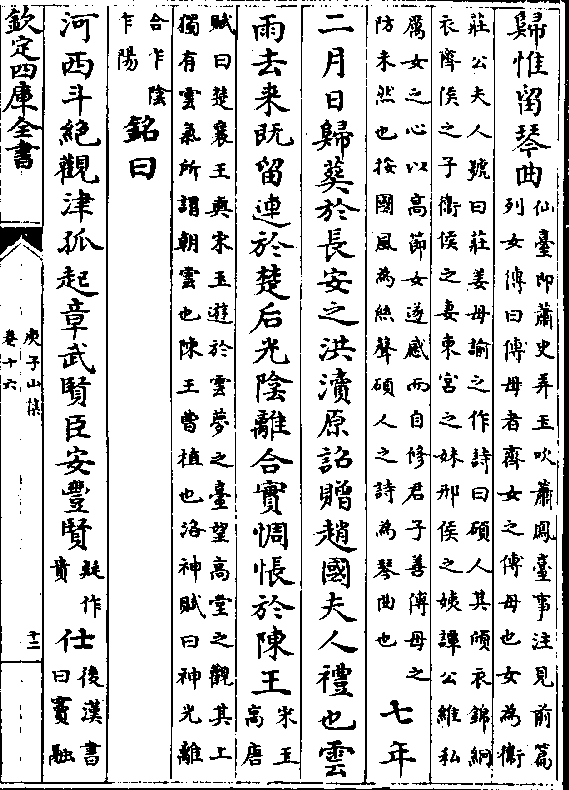 歸惟留琴曲
仙臺即蕭史弄玉吹蕭鳳臺事注見前篇
列女傳曰傅母者齊女之傅母也女為衛
莊公夫人號曰莊姜母諭之作詩曰碩人其頎衣錦絅
衣齊侯之子衛侯之妻東宮之妹邢侯之姨譚公維私
厲女之心以高節女遂感而自修君子善傅母之
防未然也按國風為絲聲碩人之詩為琴曲也
七年
二月日歸葬於長安之洪瀆原詔贈趙國夫人禮也雲
雨去来既留連於楚后光陰離合實惆悵於陳王
宋玉
高唐
賦曰楚襄王與宋玉遊於雲夢之臺望高堂之觀其上
獨有雲氣所謂朝雲也陳王曹植也洛神賦曰神光離
合乍陰
乍陽
銘曰
河西斗絶觀津孤起章武賢臣安豐賢
疑作
貴
仕
後漢書
曰竇融
欽定四庫全書
庾子山集
卷十六
十二